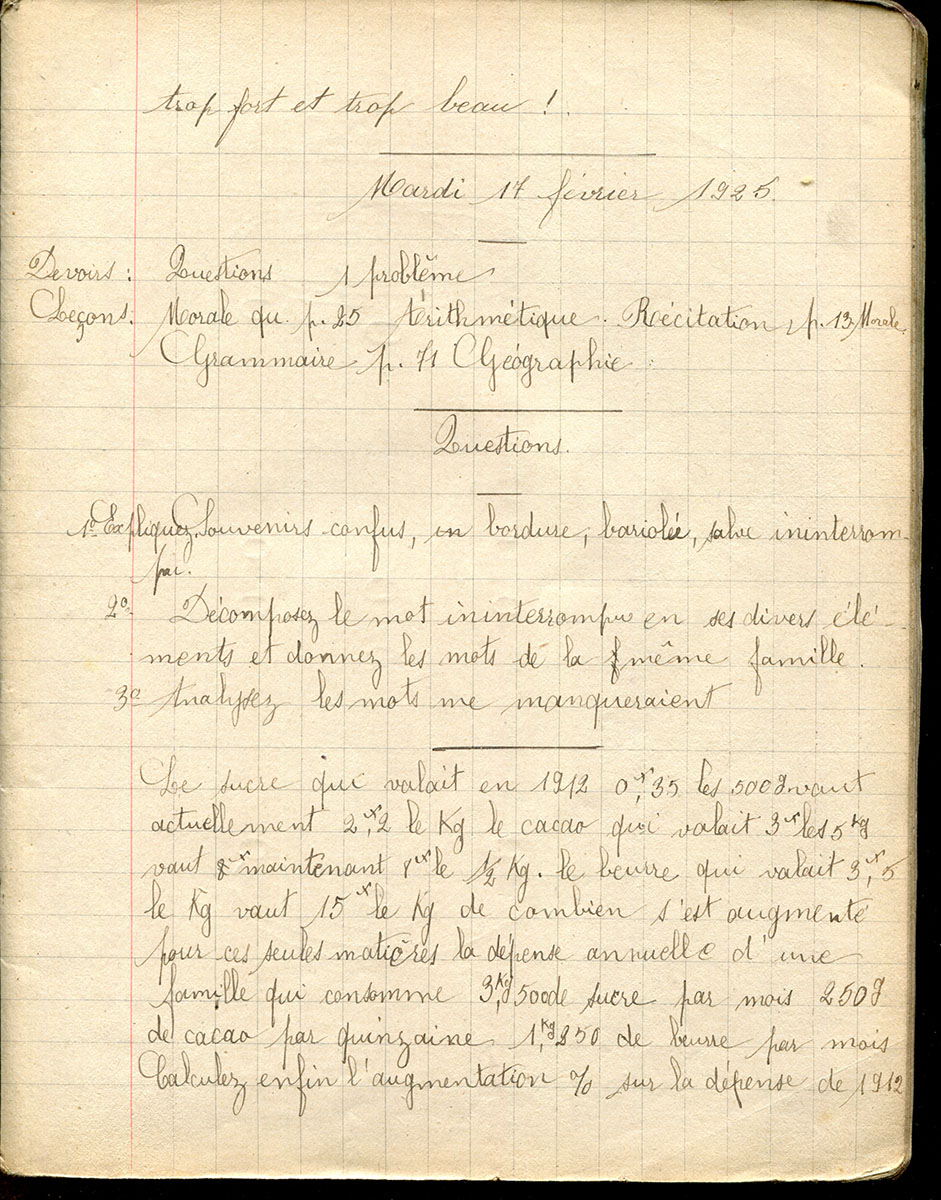 trop fort et trop beau !
Mardi 17 février 1925.
Devoirs : Questions 1 problême
Leçons. Morale du p. 25 Arithmétique. Récitation, p. 13 Morale.
Grammaire p. 71 Géographie.
Questions.
1º Expliquez. Souvenirs confus, en bordure, bariolée, salve ininterrom-
pue.
2º Décomposez le mot ininterrompu en ses divers élé-
ments et donnez les mots de la même famille.
3º Analysez les mots me manqueraient
Le sucre qui valait en 1912 0,35 les 500g vaut
actuellement 2,2 le Kg le cacao qui valait 3 les 5 kg
vaut maintenant 8 le 1/2 Kg. le beurre qui valait 3,5
le Kg vaut 15 le Kg de combien s'est augmenté
pour ces seules matières la dépense annuelle d'une
famille qui consomme 3,Kg 500 de sucre par mois 250g
de cacao par quinzaine 1,Kg 250 de beurre par mois
Calculez enfin l'augmentation % sur la dépense de 1912